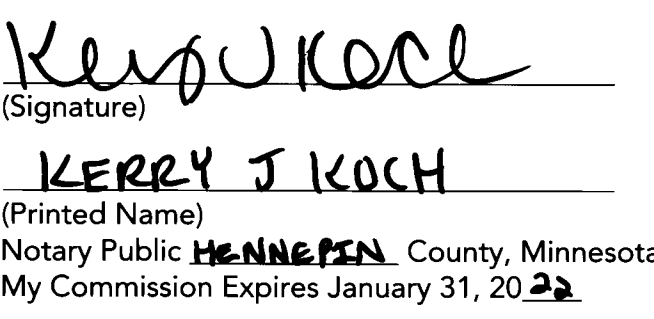 Kerry J Koch
(Signature)
KERRY J KOCH
(Printed Name)
Notary Public HENNEPIN County, Minnesota
My Commission Expires January 31, 2022